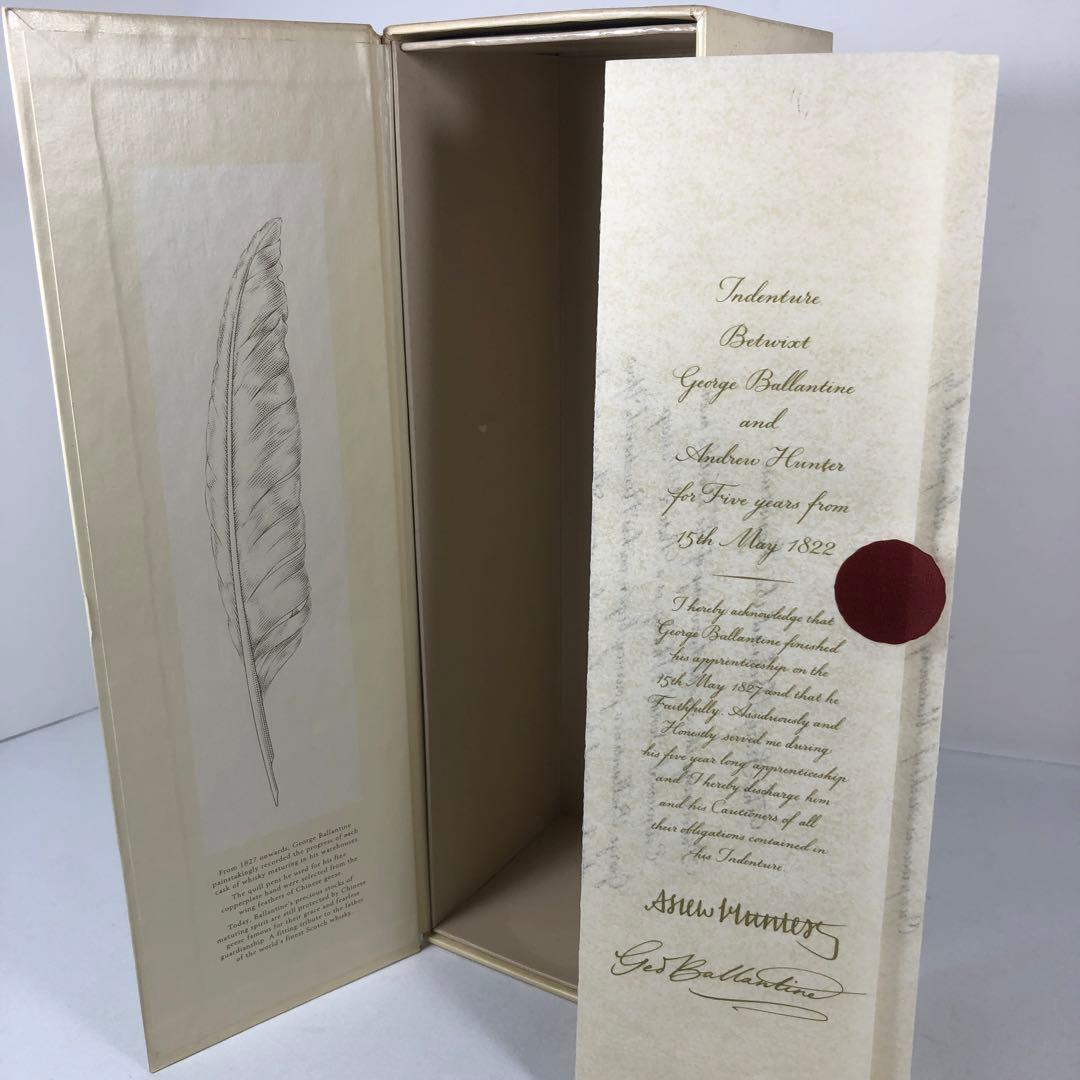 From 1827 onwards, George Ballantine
painstakingly recorded the progress of each
cask of whisky maturing in his warehouses.
The quill pens he used for his fine
copperplate hand were selected from the
wing feathers of Chinese geese.
Today, Ballantine's precious stocks of
maturing spirit are still protected by Chinese
geese famous for their grace and fearless
guardianship. A fitting tribute to the father
of the world's finest Scotch whisky.
Indenture
Betwixt
George Ballantine
and
Andrew Hunter
for Five years from
15th May 1822
I hereby acknowledge that
George Ballantine finished
his apprenticeship on the
15th May 1827 and that he
Faithfully. Assiduously and
Honestly served me during
his five year long apprenticeship
and I hereby discharge him
and his Cautioners of all
their obligations contained in
this Indenture.
Hunter
Geo Ballantine